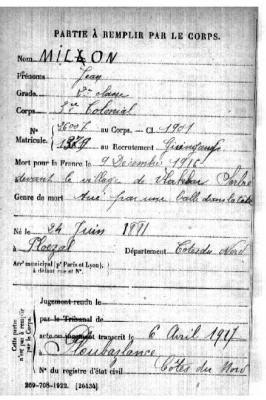 PARTIE À REMPLIR PAR LE CORPS.
Nom MILLON
Prénoms Jean
Grade 2me classe
Corps Colonial
N° 3600 au Corps. — Cl. 1901
Matricule. 1379 au Recrutement Guingamp
Mort pour la France le 9 Décembre 1915
devant le village de Serbie
Genre de mort Tué par une balle dans la tête
Né le 24 Juin 1881
à Ploëzal Département Côtes du Nord
Arr' municipal (p' Paris et Lyon),
à défaut rue et N°.
Cette partie
n'est pas à remplir
par le Corps.
Jugement rendu le
par le Tribunal de
acte ou jugement transcrit le 6 Avril 1917
à Ploubazlanec
N° du registre d'état civil Côtes du Nord
269-708-1922. [26434]